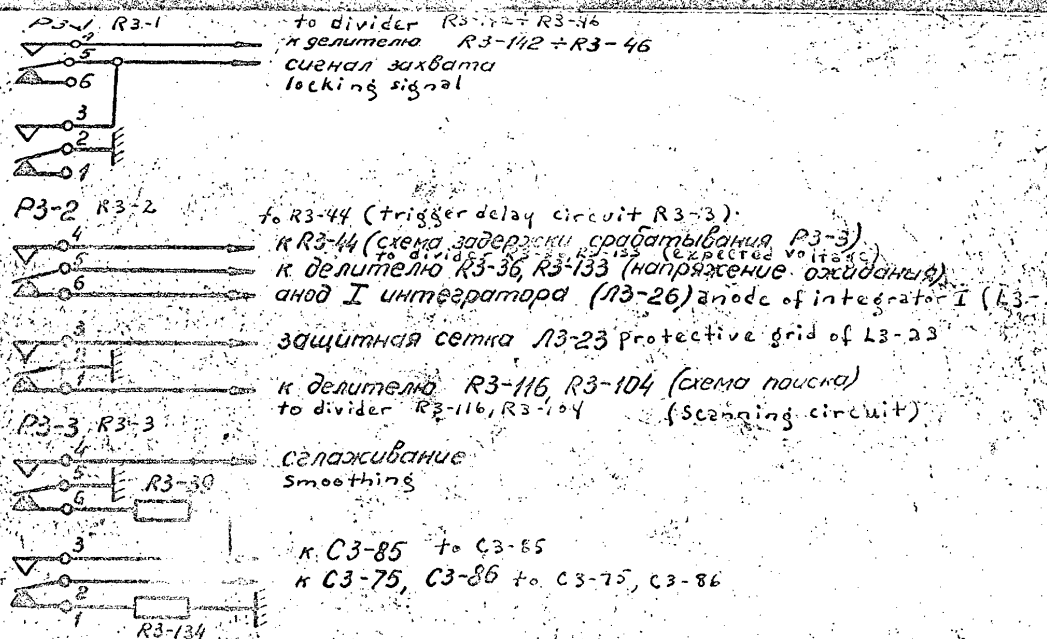 Р3-1 R3-1
to divider R3-142 ÷ R3-46
к делителю R3-142 ÷ R3-46
4
5
сигнал захвата
6
locking signal
3
2
1
Р3-2 R3-2
to R3-44 (trigger delay circuit R3-3).
4
к R3-44 (схема задержки срабатывания Р3-3)
to divider R3-36, R3-133 (expected voltage)
5
к делителю R3-36, R3-133 (напряжение ожидания)
6
анод I интегратора (Л3-26) anode of integrator I (L3-
3
защитная сетка Л3-23 protective grid of L3-23
1
к делителю R3-116, R3-104 (схема поиска)
to divider R3-116, R3-104 (Scanning circuit)
Р3-3 R3-3
4
сглаживание
5
Smoothing
R3-39
6
3
к С3-85 to C3-85
к С3-75, С3-86 to C3-75, C3-86
2
1
R3-134